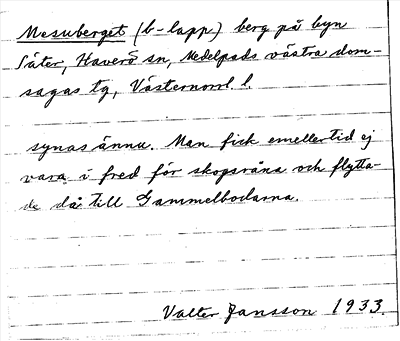 Mesuberget (b-lapp) berg på byn
Säter, Haverö sn, Medelpads västra dom-
sagas tg, Västernorrl. l.
synas ännu. Man fick emellertid ej
vara i fred för skogsråna och flytta-
de då till Gammelbodarna.
Valter Jansson 1933.